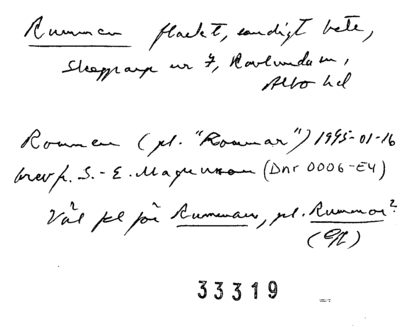 Rumman flackt, sandigt bete,
Skepparp nr 7, Ravlunda sn,
Albo hd
Roumen (pl. "Roumar") 1995-01-16
brev fr. S.-E. Magnusson (Dnr 0006-E4)
Väl pl på Rumman, pl. Rummor?
33319